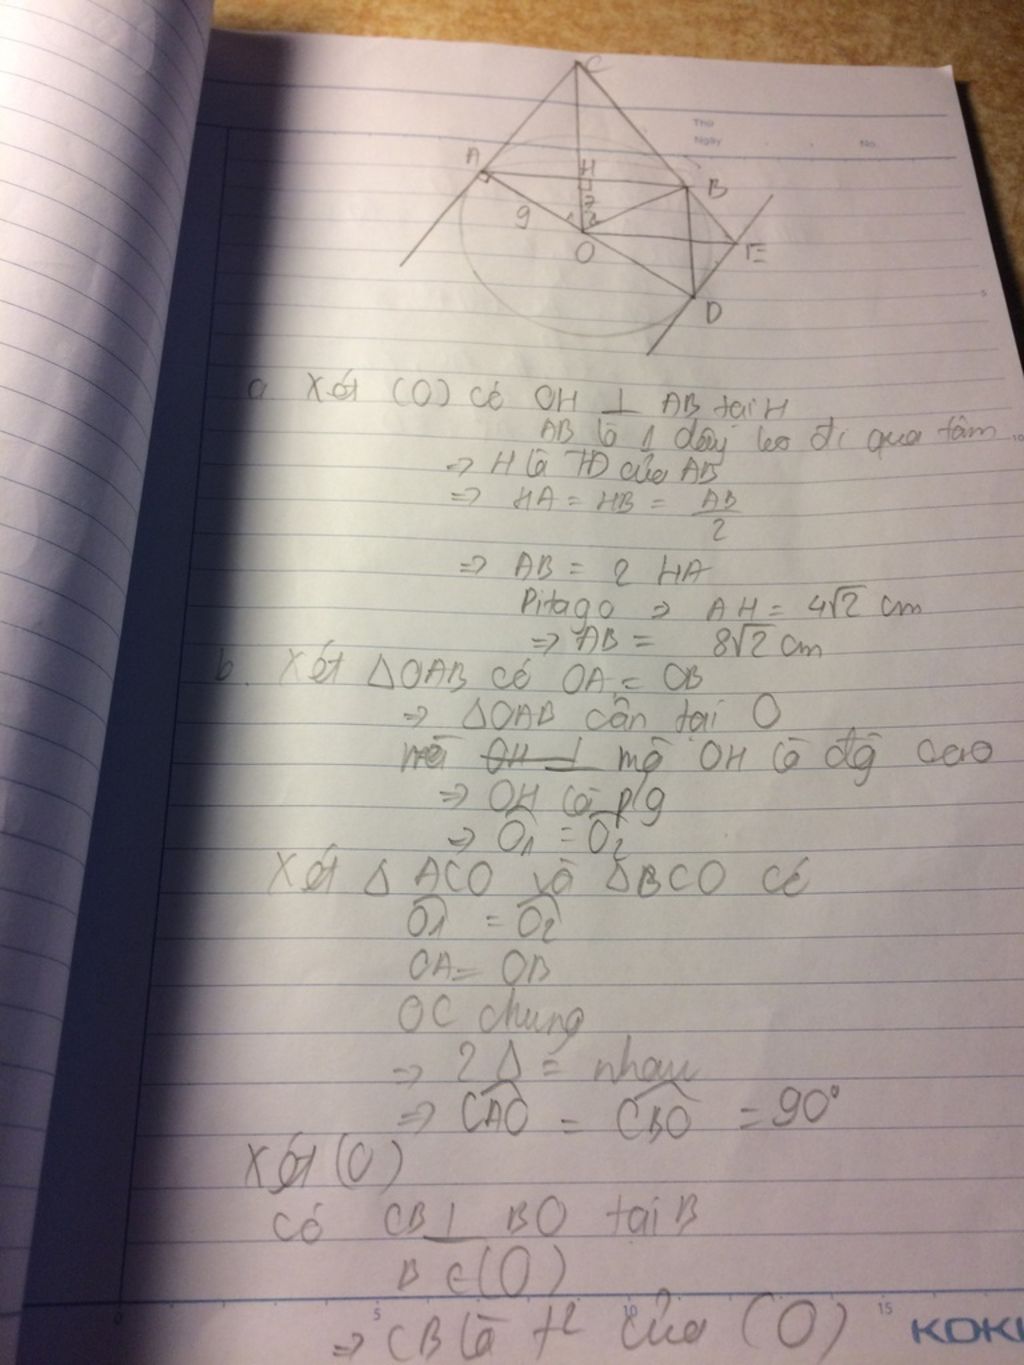 C
Thứ
Ngày
No.
A
H
B
9
1
3
2
O
E
D
5
a Xét (O) có OH ⊥ AB tại H
AB là 1 dây ko đi qua tâm
10
=> H là TĐ của AB
=> HA = HB = AB/2
=> AB = 2 HA
Pitago => AH = 4√2 cm
=> AB = 8√2 cm
b. Xét ΔOAB có OA = OB
=> ΔOAB cân tại O
mà OH ⊥ mà OH là đg cao
=> OH là p/g
=> Ô1 = Ô2
Xét Δ ACO và ΔBCO có
Ô1 = Ô2
OA = OB
OC chung
=> 2 Δ = nhau
=> CAO = CBO = 90°
Xét (O)
có CB ⊥ BO tại B
B ∈ (O)
0 5 10 15
=> CB là t² của (O)